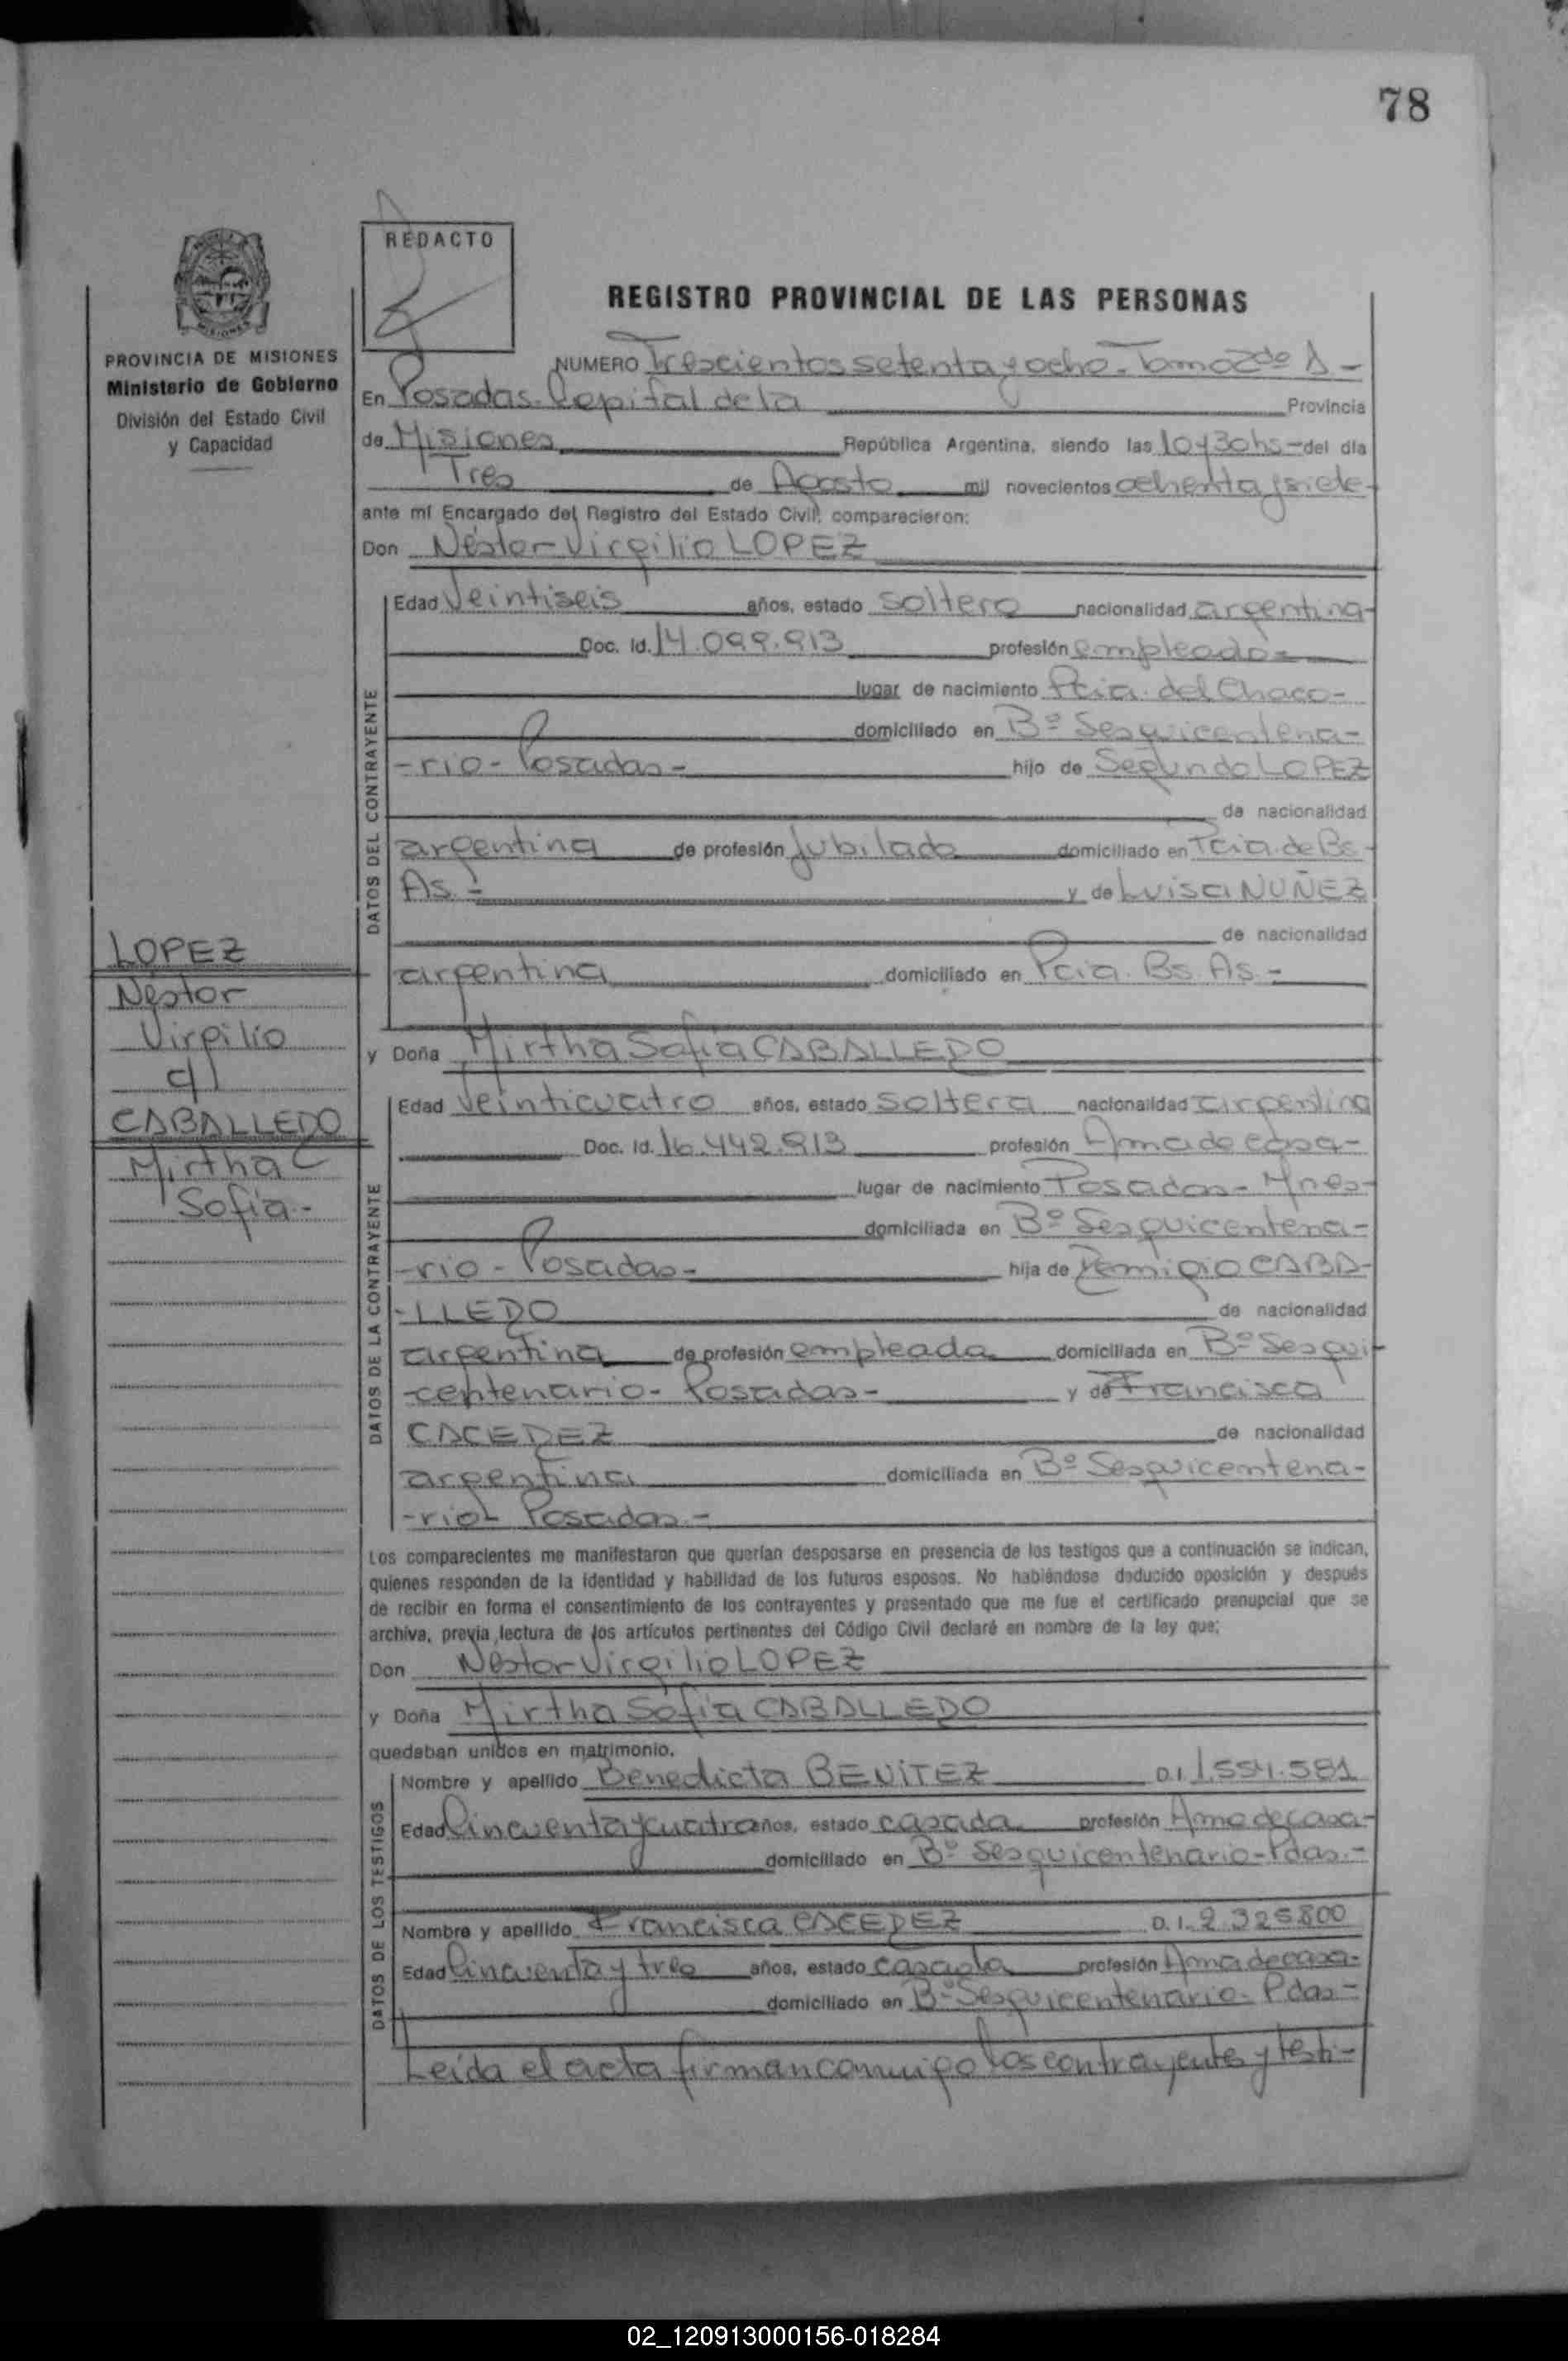 78
REDACTO
REGISTRO PROVINCIAL DE LAS PERSONAS
PROVINCIA DE MISIONES
Ministerio de Gobierno
División del Estado Civil
y Capacidad
NUMERO Trescientos setenta y ocho - Tomo 2do A -
En Posadas - Capital de la Provincia
de Misiones República Argentina, siendo las 10 y 30 hs - del día
Tres de Agosto mil novecientos ochenta y siete -
ante mí Encargado del Registro del Estado Civil, comparecieron:
Don Néstor Virgilio LOPEZ
DATOS DEL CONTRAYENTE
Edad Veintiseis años, estado soltero nacionalidad argentina -
Doc. Id. 14.099.913 profesión empleado -
lugar de nacimiento Pcia. del Chaco -
domiciliado en Bº Sesquicentena-
-rio - Posadas - hijo de Segundo LOPEZ
de nacionalidad
argentina de profesión Jubilado domiciliado en Pcia. de Bs.
As. - y de Luisa NUÑEZ
de nacionalidad
argentina domiciliado en Pcia. Bs. As. -
LOPEZ
Néstor
Virgilio
c/
CABALLERO
Mirtha
Sofía -
y Doña Mirtha Sofía CABALLERO
DATOS DE LA CONTRAYENTE
Edad Veinticuatro años, estado soltera nacionalidad argentina
Doc. Id. 16.442.913 profesión Ama de casa -
lugar de nacimiento Posadas - Mnes -
domiciliada en Bº Sesquicentena-
-rio - Posadas - hija de Remigio CABA-
-LLERO de nacionalidad
argentina de profesión empleada domiciliada en Bº Sesqui-
-centenario - Posadas - y de Francisca
CACEREZ de nacionalidad
argentina domiciliada en Bº Sesquicentena-
-rio - Posadas -
Los comparecientes me manifestaron que querían desposarse en presencia de los testigos que a continuación se indican,
quienes responden de la identidad y habilidad de los futuros esposos. No habiéndose deducido oposición y después
de recibir en forma el consentimiento de los contrayentes y presentado que me fue el certificado prenupcial que se
archiva, previa lectura de los artículos pertinentes del Código Civil declaré en nombre de la ley que:
Don Néstor Virgilio LOPEZ
y Doña Mirtha Sofía CABALLERO
quedaban unidos en matrimonio.
DATOS DE LOS TESTIGOS
Nombre y apellido Benedicta BENITEZ D.I. 1.554.581
Edad Cincuenta y cuatro años, estado casada profesión Ama de casa -
domiciliado en Bº Sesquicentenario - Pdas. -
Nombre y apellido Francisca CACEREZ D.I. 2.325.800
Edad Cincuenta y tres años, estado casada profesión Ama de casa -
domiciliado en Bº Sesquicentenario - Pdas -
Leída el acta firman conmigo los contrayentes y testi-
02_120913000156-018284